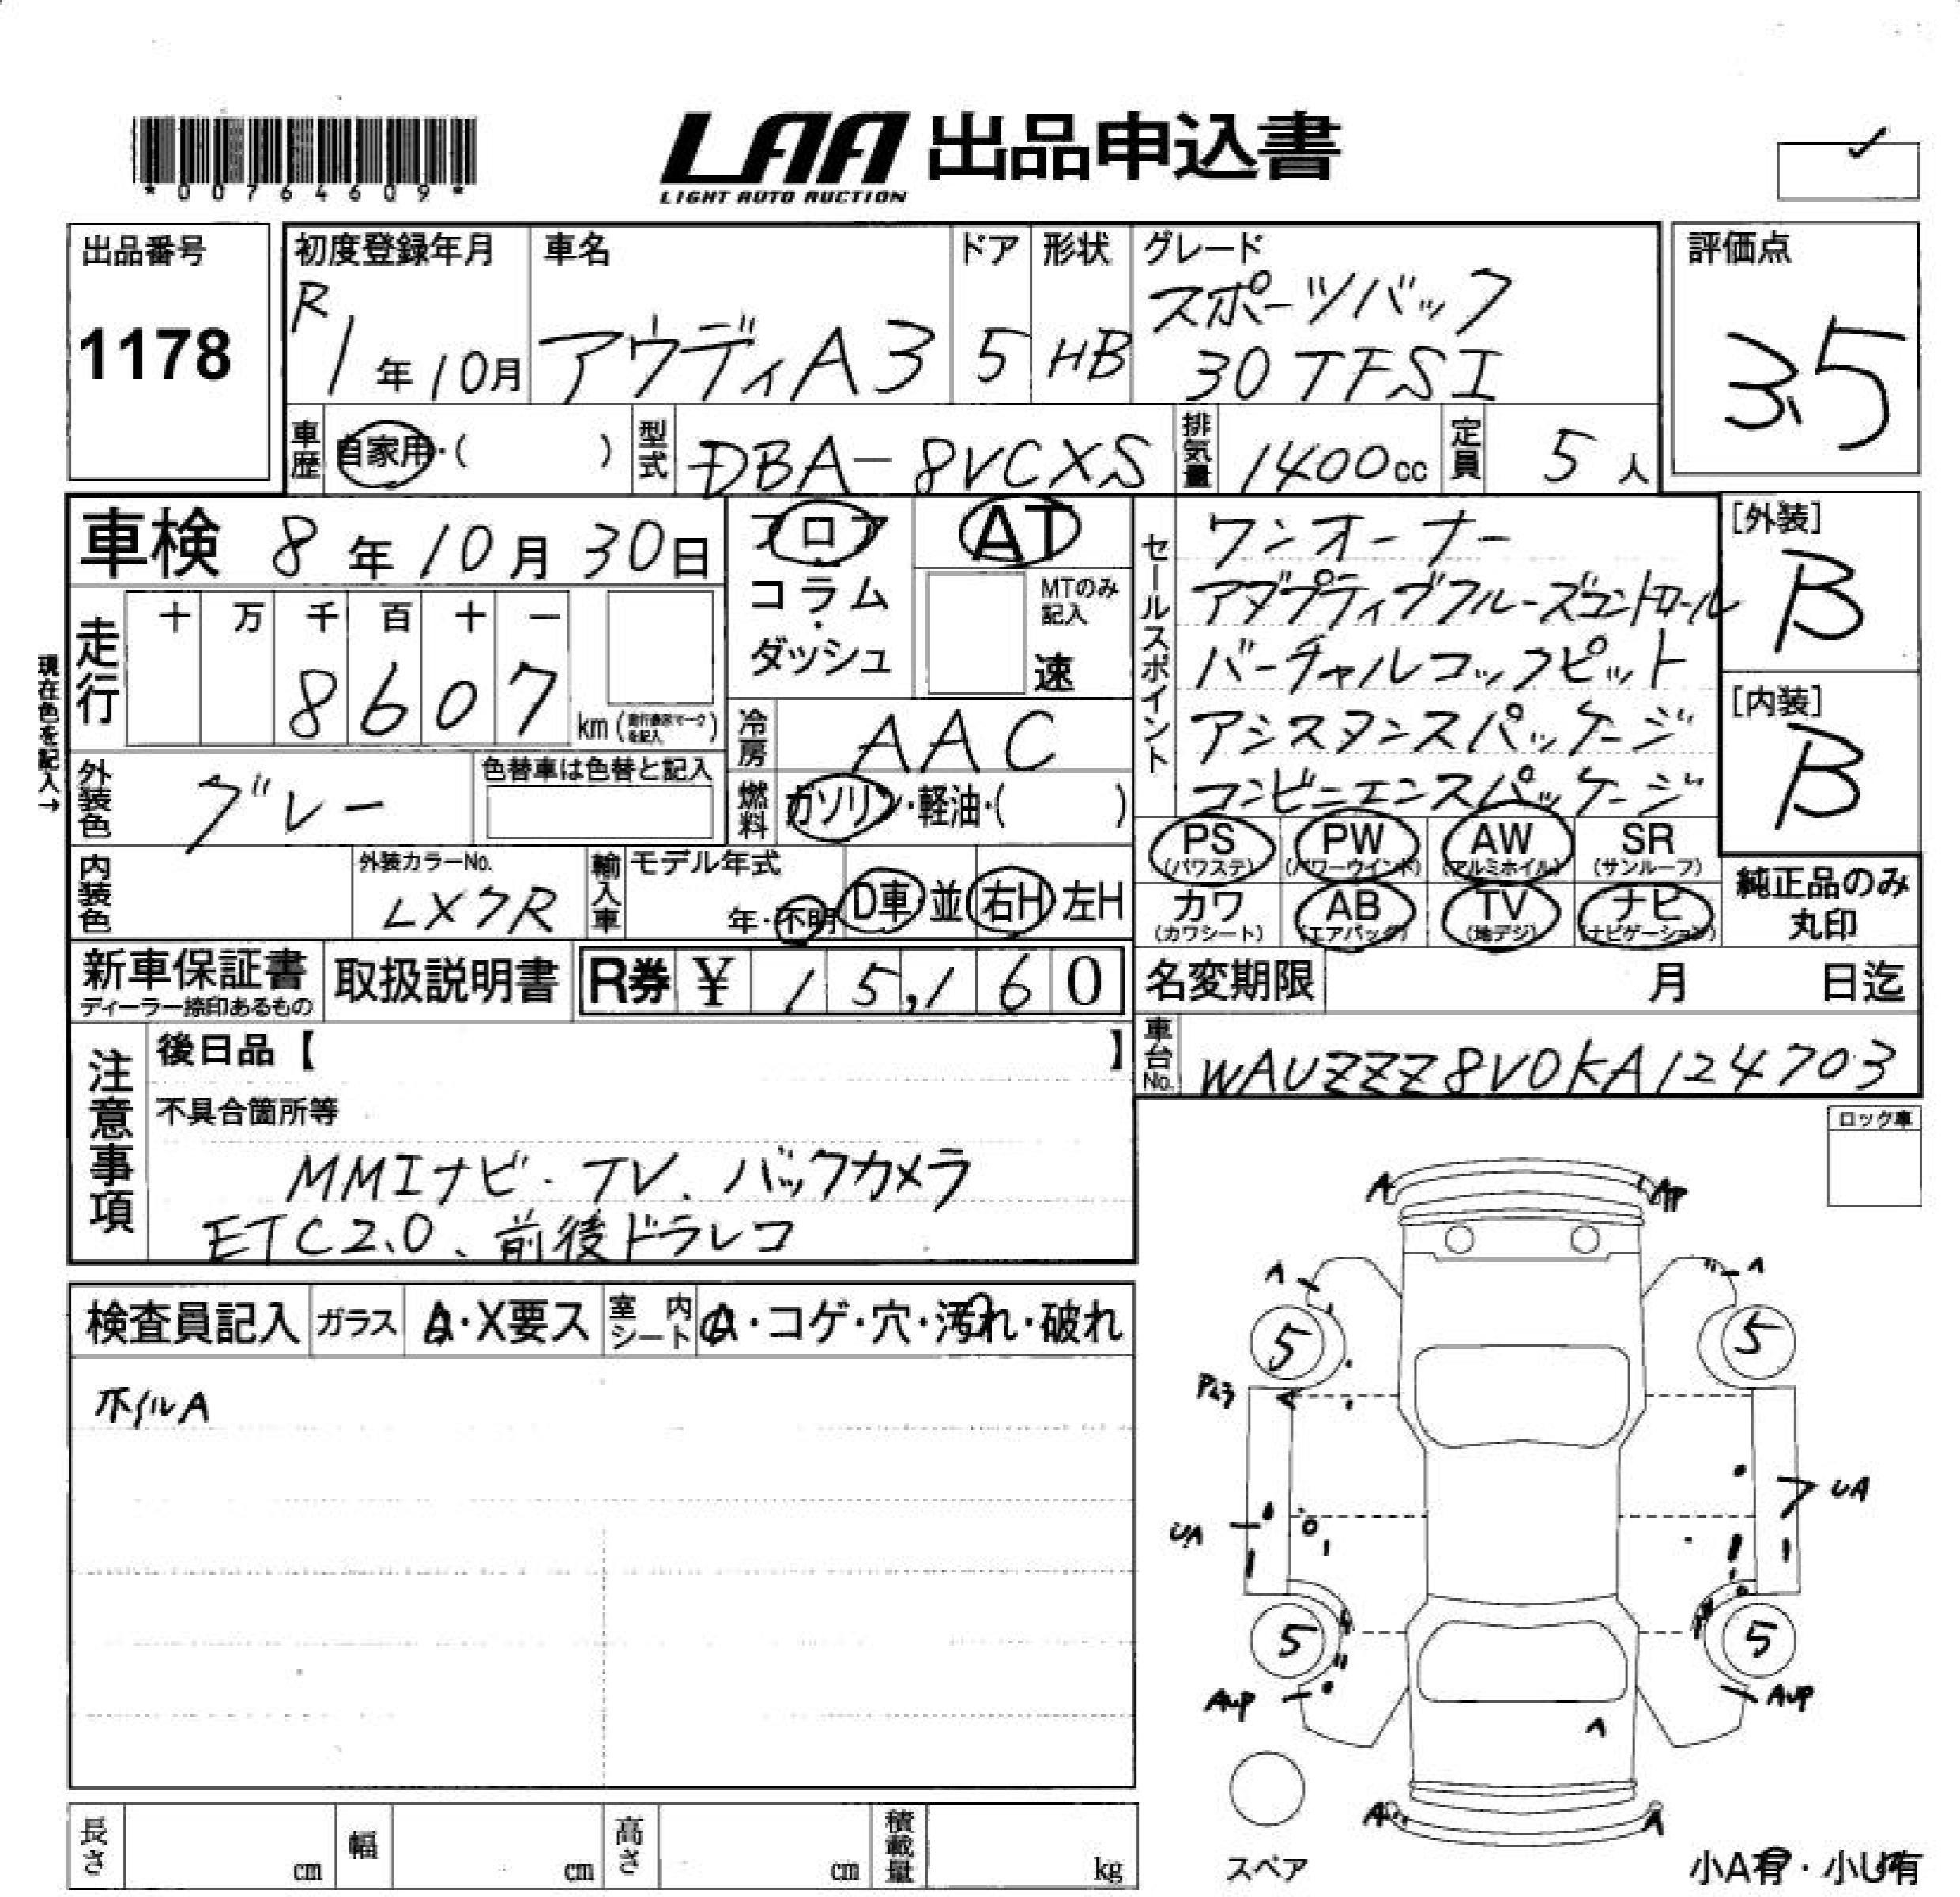 *00764609*
LAA 出品申込書
LIGHT AUTO AUCTION
出品番号
1178
初度登録年月
R1年10月
車名
アウディA3
ドア
5
形状
HB
グレード
スポーツバック
30 TFSI
評価点
3.5
車歴 自家用・( )
型式 DBA-8VCXS
排気量 1400cc
定員 5人
車検 8年10月30日
フロア
コラム
ダッシュ
AT
MTのみ記入
速
走行 十 万 千 百 十 一
8607 km
現在色を記入→
冷房 AAC
燃料 ガソリン・軽油・( )
外装色 グレー
色替車は色替と記入
内装色
外装カラーNo.
LX7R
輸入車 モデル年式
年・不明 D車 並 右H 左H
セールスポイント
ワンオーナー
アダプティブクルーズコントロール
バーチャルコックピット
アシスタンスパッケージ
コンビニエンスパッケージ
[外装]
B
[内装]
B
PS (パワステ) PW (パワーウインド) AW (アルミホイル) SR (サンルーフ)
カワ (カワシート) AB (エアバッグ) TV (地デジ) ナビ (ナビゲーション)
純正品のみ丸印
新車保証書
ディーラー捺印あるもの
取扱説明書
R券 ¥ 15,160
名変期限 月 日迄
車台No. WAUZZZ8V0KA124703
注意事項
後日品【 】
不具合箇所等
MMIナビ・TV、バックカメラ
ETC2.0、前後ドラレコ
ロック車
検査員記入 ガラス A・X要ス 室内シート A・コゲ・穴・汚れ・破れ
ホイルA
A AP
A A
5 5
UA
UA
5 5
AUP AUP
A
A A
スペア
小A有・小U有
長さ cm 幅 cm 高さ cm 積載量 kg